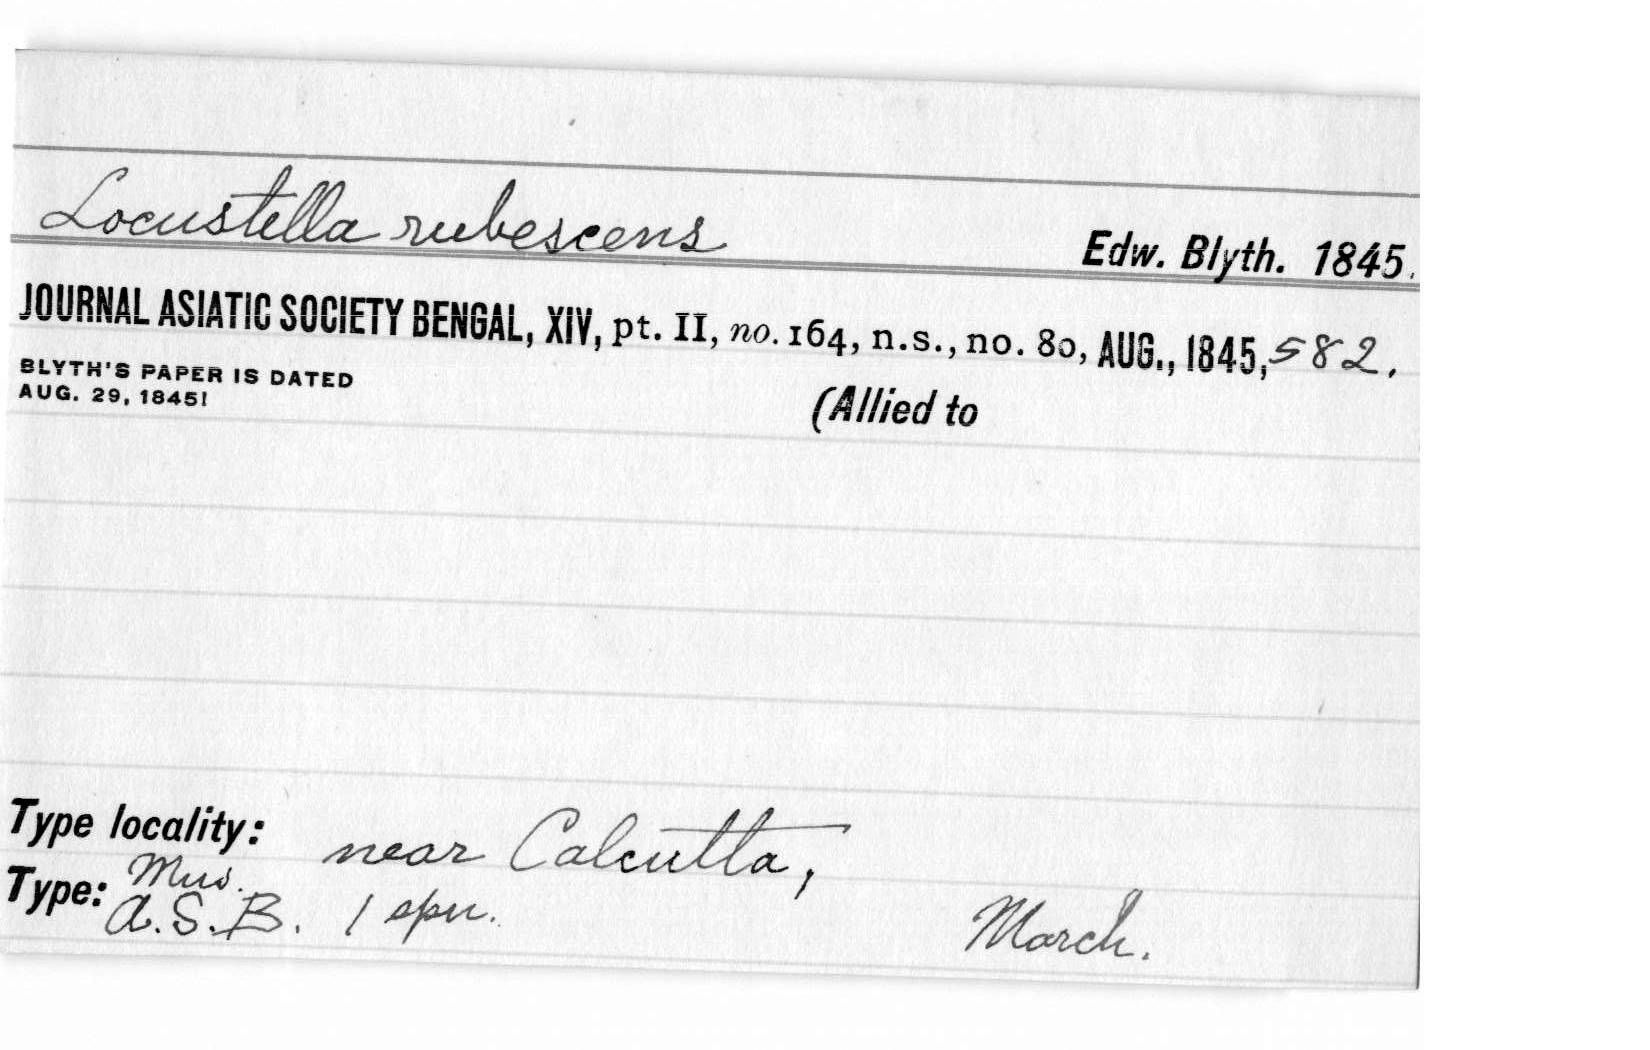 Locustella rubescens Edw. Blyth. 1845.
JOURNAL ASIATIC SOCIETY BENGAL, XIV, pt. II, no. 164, n.s., no. 80, AUG., 1845, 582.
BLYTH'S PAPER IS DATED
AUG. 29, 1845!
(Allied to
Type locality: near Calcutta,
Type: Mus. A.S.B. 1 spec. March.